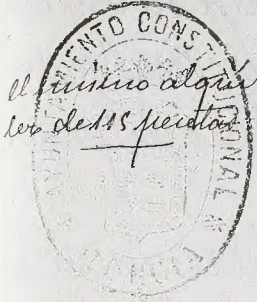 AYUNTAMIENTO CONSTITUCIONAL *
el mismo alqui
ler de 115 pesetas